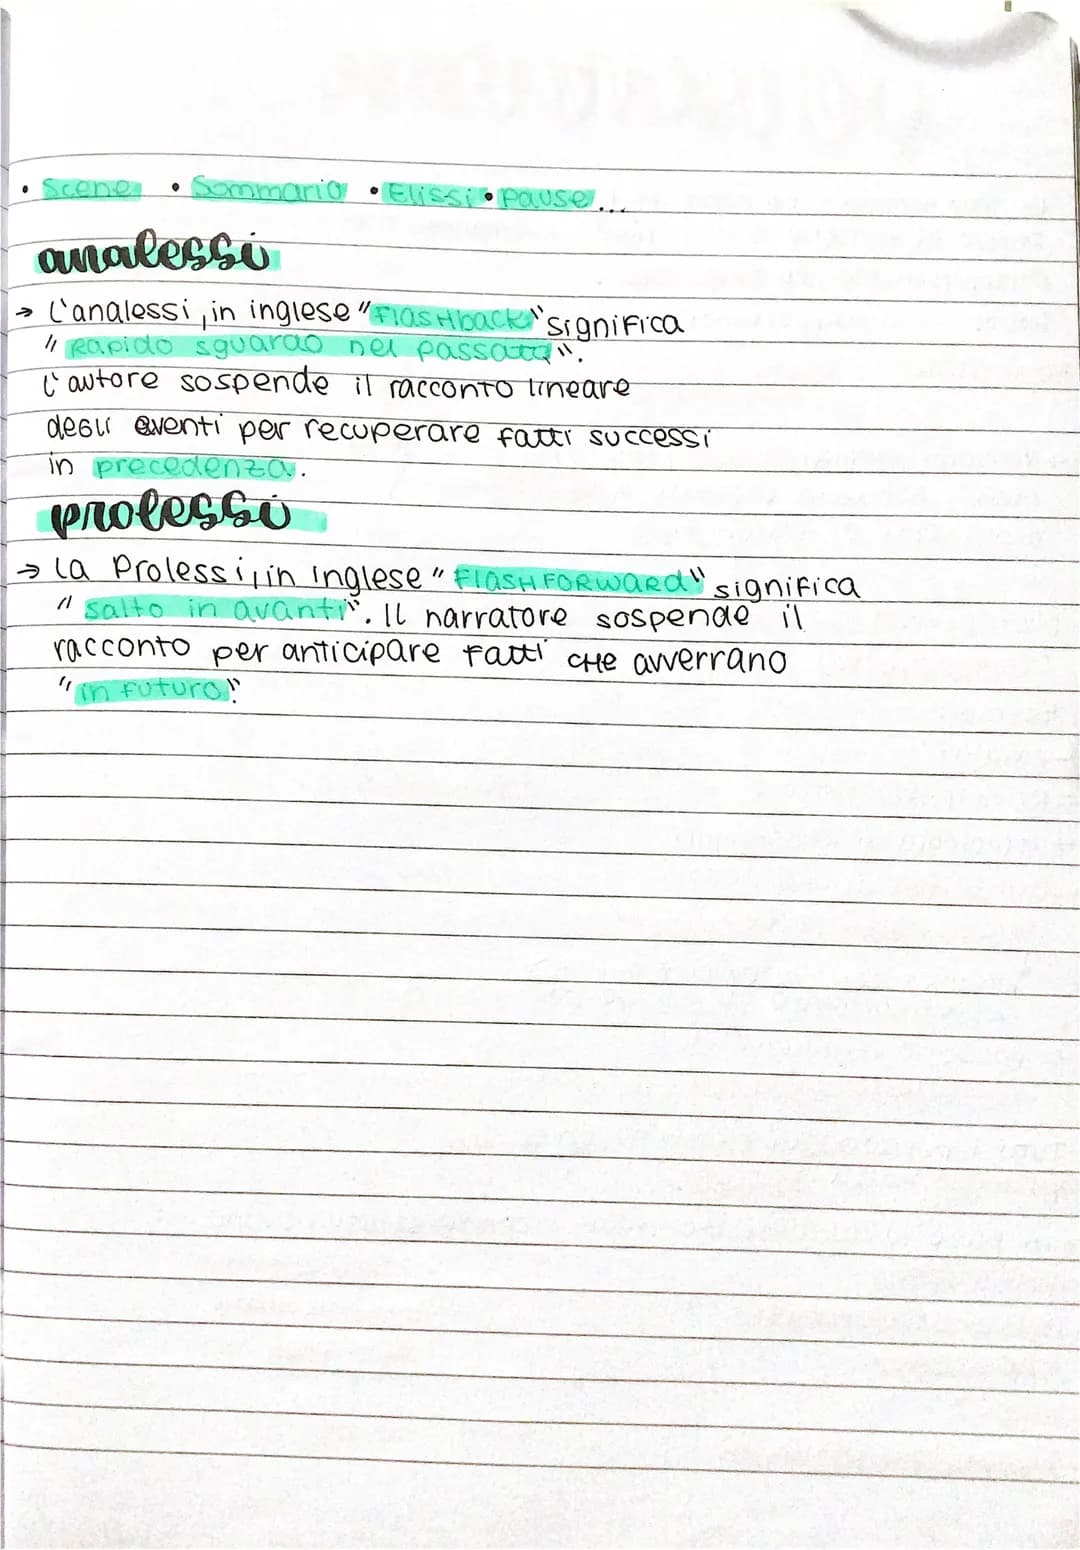 • Scene • Sommario • Elissi • pause...
analessi
→ L'analessi, in inglese "FlasHback" significa
"Rapido sguardo nel passato".
L'autore sospende il racconto lineare
degli eventi per recuperare fatti successi
in precedenza.
prolessi
→ La Prolessi, in inglese "FlasHFORWARD" significa
"salto in avanti". Il narratore sospende il
racconto per anticipare fatti cHe avverrano
"in futuro"